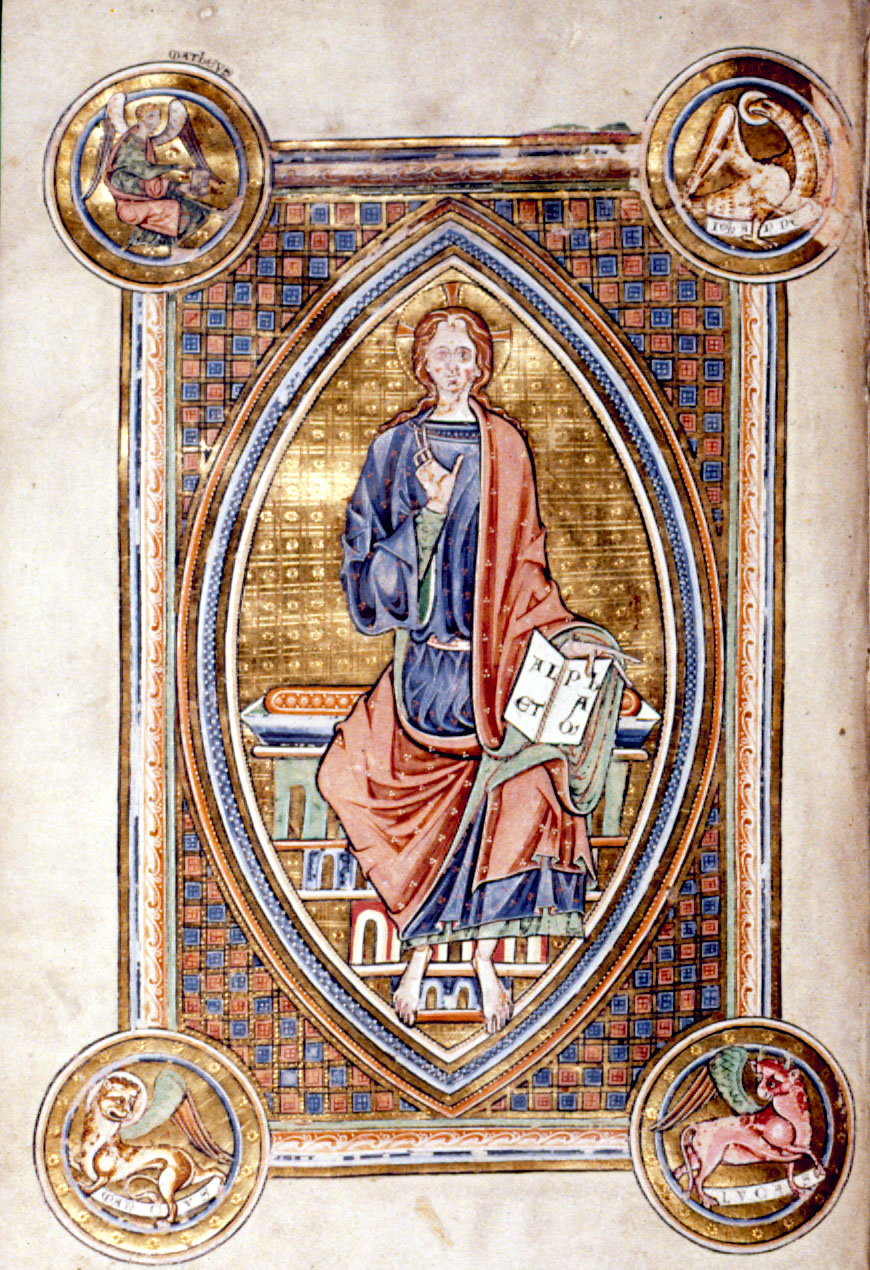 MATheVS
IOhANNE
ALPhA
ET ω
MARCVS
LVCAS